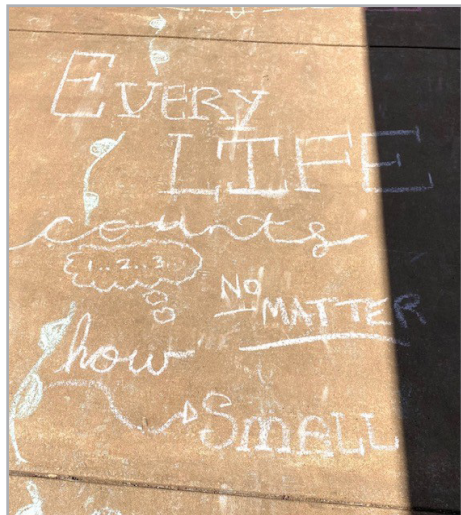 EVERY
LIFE
counts
1..2..3..
No
MATTER
how
SMALL